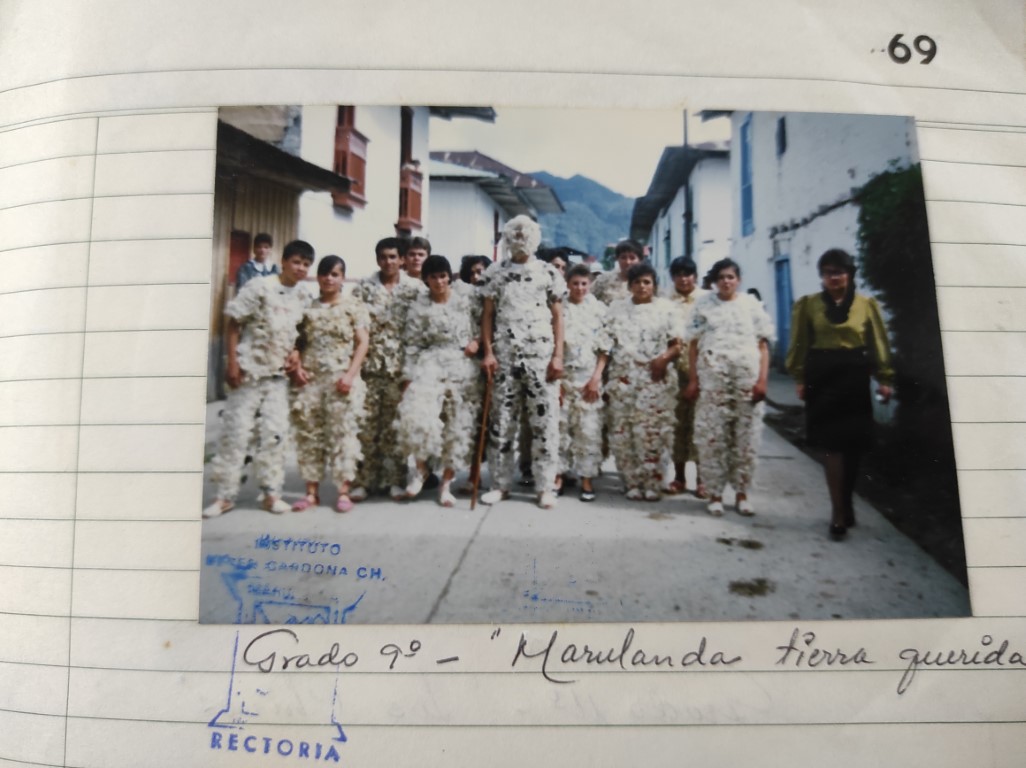 69
INSTITUTO
CARDONA CH.
MARU.
Grado 9º - "Marulanda tierra querida
RECTORIA